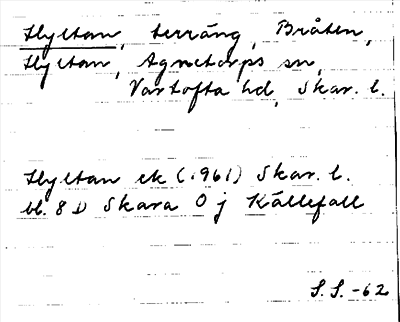 Hyltan, terräng, Bråten,
Hyltan, Agnetorps sn,
Vartofta hd, Skar. l.
Hyltan ek (1961) Skar. l.
bl. 8 D Skara 0 j Källefall
S.S. -62